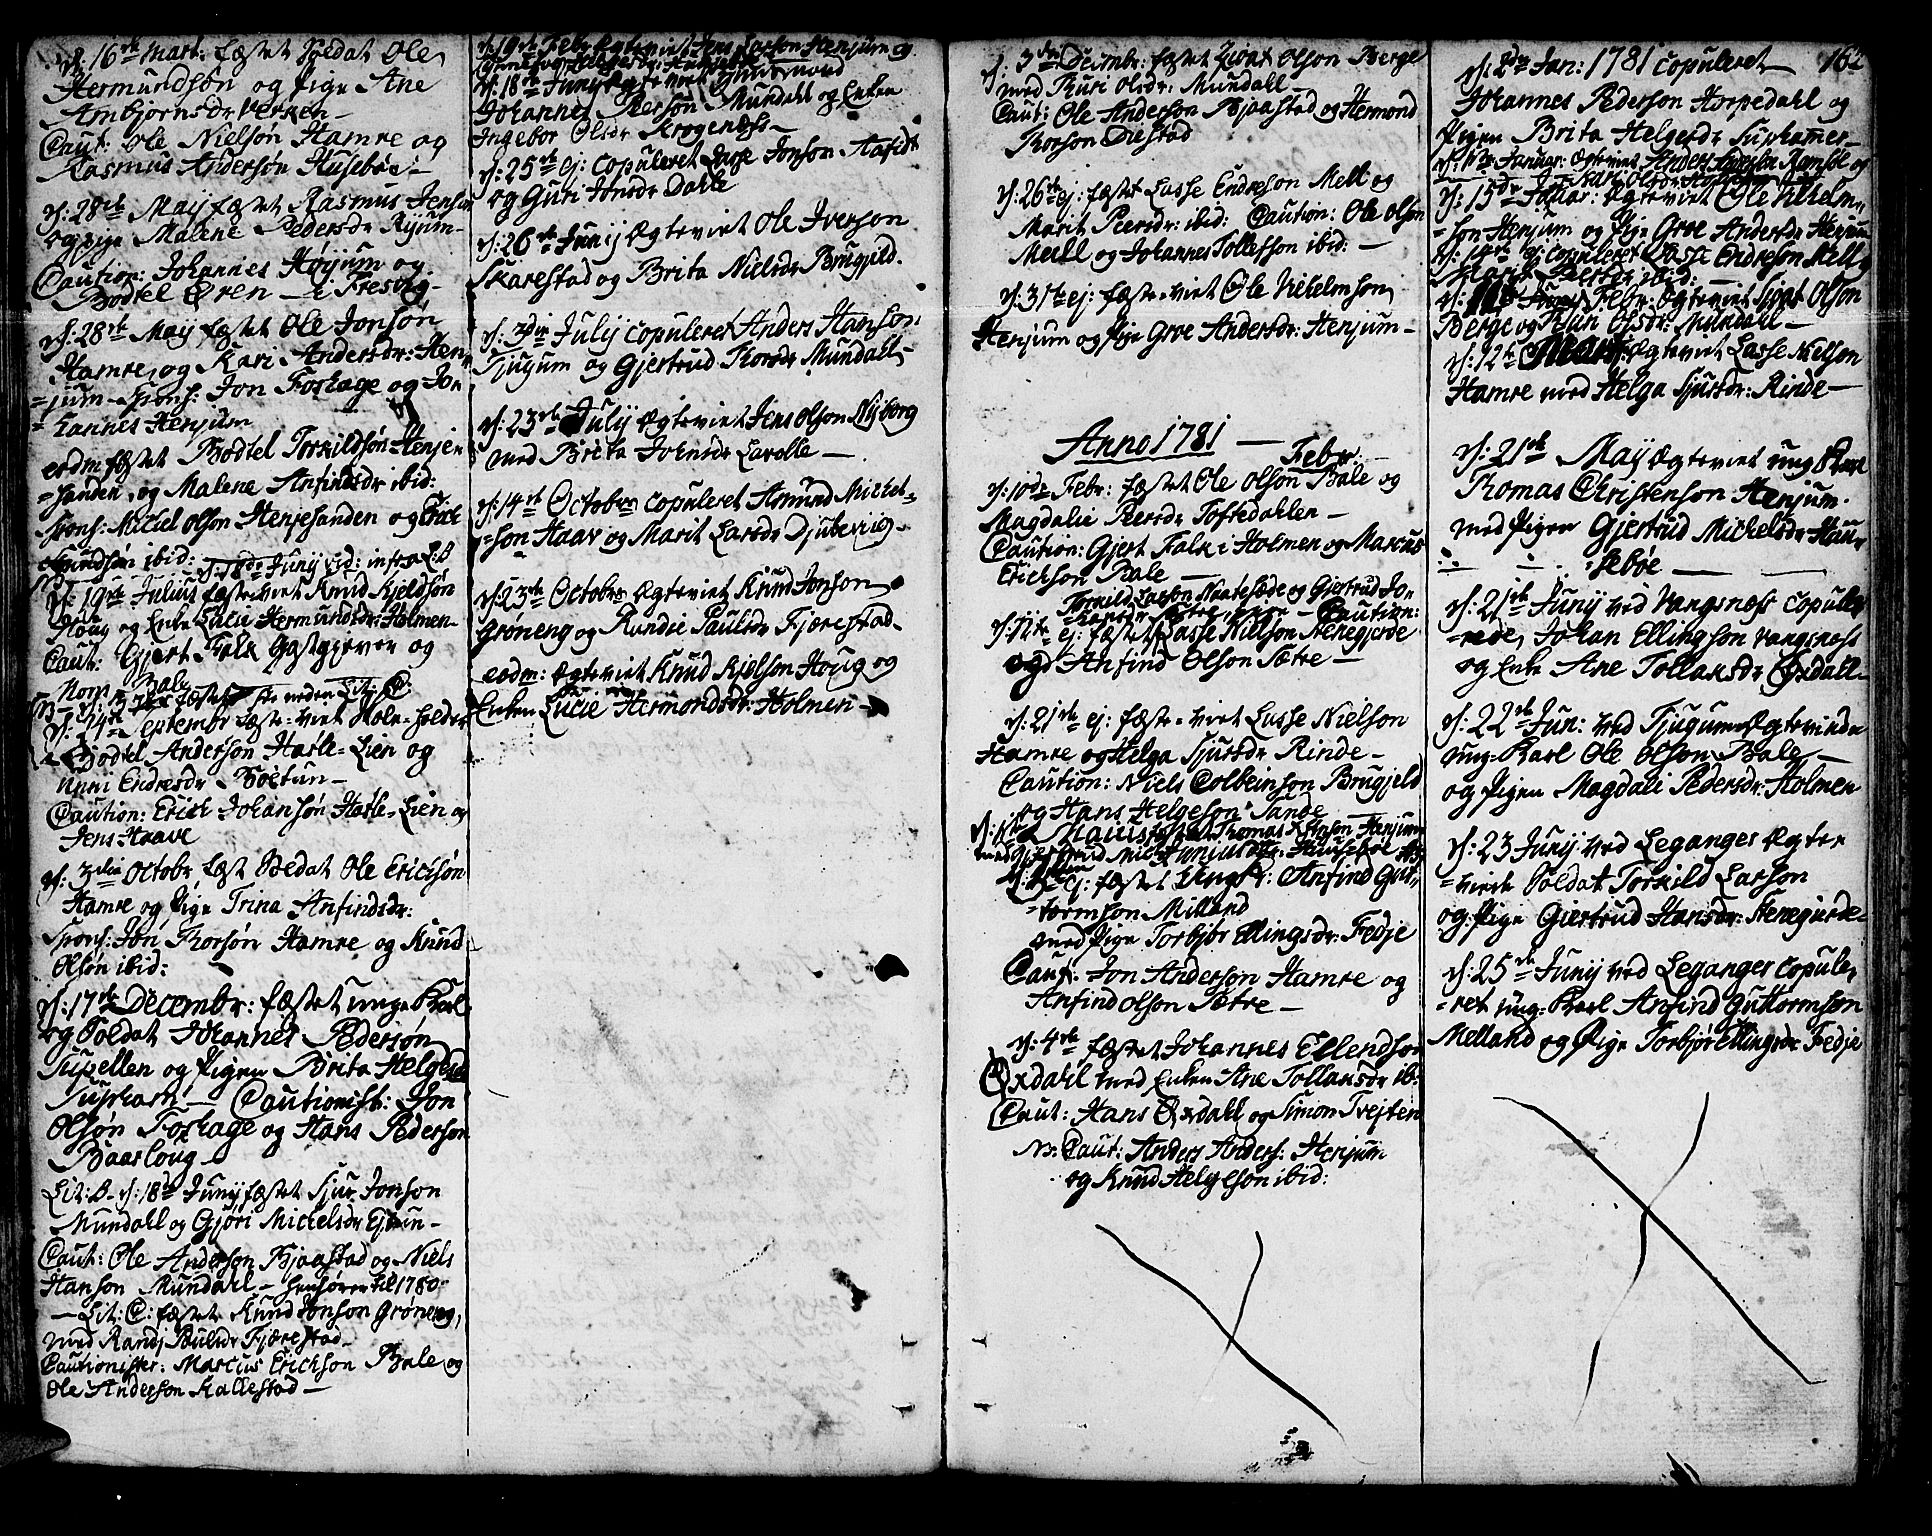 d: 16de Mart: fæstet Soldat Ole
Hermundsøn og Pige Ane
Anbjørnsdr Verken
Caut: Ole Nielsøn Hamre og
Rasmus Andersøn Husebøe
d: 28de Maij fæstet Rasmus Jensøn
og pige Malene Pedersdr Rijum
Caution: Johannes Høyum og
Bodtel Øren i Fresvig
d: 28de Maij fæstet Ole Jonsøn
Hamre, og Kari Andersdr: Hen=
=jum Spons: Jon Forhage og Jo=
=hannes Henjum
eodm fæstet Bodtel Torkildsøn Henje
=sanden, og Malene Anfindsdr ibid:
Spons: Michel Olson Henjesanden og Erich
Amundsøn ibid: d: 18de Junij vid: infra Lit B
d: 19de Julius fæste-viet Knud Kjeldsøn
Houg og Enke Lucie Hermundsdr: Holmen
Caut: Gjert Falk Gestgiever og
Bale
d: 24de Septembr fæste-viet
Bodtel Anderson Hatle-Lien og
Unni Endresdr Bøetun
Caution: Erich Johansøn Hatle-Lien og
Jens Haave
d: 3die Octobr fæst Soldat Ole Erichsøn
Hamre og Pige Trina Anfindsdr:
Spons: Jon Thorsøn Hamre og Knud
Olsøn ibid:
d: 17de Decembr: fæstet unge Karl
og Soldat Johannes Pedersøn
Tupellen og Pigen Brita Helgesdr
Supham Cautionist: Jon
Olsøn Forhage og Hans Pederson
Baarloug
Lit: B. d: 18de Junij fæstet Sjur Jonson
Mundall og Gjøri Michelsdr Ejtun
Caut: Ole Anderson Bjaastad og Niels
Hanson Mundahl henhører til 1780
Lit: C: fæstet Knud Jonson Grøneng,
med Randi Poulsdr Fjærestad
Cautionister: Marcus Erichson Bale og
Ole Anderson Kallestad
d: 19de Febr Egteviet Jens Larson Henjum og
d: 18de Junij Egteviet
Johannes Person Mundall og Enken
Ingebor Olsdr Krogenæss
d: 25de ej: Copuleret Lasse Jonson Aafedt
og Guri Jonsdr Dahle
d: 26de Junij Egteviet Ole Iverson
Skarestad og Brita Nielsdr Brugjeld.
d: 3die Julij Copuleret Anders Hanson
Tjugum og Gjertrud Thorsdr Mundall
d: 23de Julij Egteviet Jens Olson Nyborg
med Brita Johnsdr Lavolle
d: 14de Octobr Copuleret Amund Michel=
=son Haav og Marit Larsdr Djubevig
d: 23de Octobr Egteviet Knud Jonson
Grøneng og Randie Paulsdr Fjærestad
eodm: Egteviet Knud Kjelson Houg og
Enken Lucie Hermondsdr: Holmen
d: 3die Decembr: fæstet Sjoat Olson Berge
med Thuri Olsdr: Mundall
Caut: Ole Anderson Bjaastad og Hermond
Thorson Diestad
d: 26de ej: fæstet Lasse Endreson Mell og
Marit Peersdr: ibid: Caution: Ole Olson
Mell og Johannes Tollefson ibid:
d: 31te ej: fæste-viet Ole Vilhelmson
Henjum og Pige Groe Andersdr: Henjum
Anno 1781
Febr:
d: 10de Febr: fæstet Ole Olson Bale og
Magdalie Peersdr Toftedahlen
Caution: Gjert Falk i Holmen og Marcus
Erichson Bale
Torkild Larson Naatesøde og Gjertrud
Caution:
d: 12te ej: fæstet Lasse Nielson Henegjerde
og Anfind Olson Sætre
d: 21de ej: fæste-viet Lasse Nielson
Hamre og Helga Sjursdr Rinde
Caution: Niels Colbeinson Brugjeld
og Hans Helgeson Tande
fæstet Thomas Henjum
med Gjertrud
ej: fæstet Ungk: Anfind Gut=
=tormson Milland
med Pige Torbjør Ellingsdr: Fedje
Caut: Jon Anderson Hamre og
Anfind Olson Sætre
d: 4de fæstet Johannes Ellendson
Øxdahl med Enken Ane Tollaksdr ib:
Caut: Hans Øxdall og Simon Tvejten
N. Caut: Anders Anders: Henjum
og Knud Helgeson ibid:
162
d: 2den Jan: 1781 Copuleret
Johannes Pederson Horpedahl og
Pigen Brita Helgesdr Suphammer
Januar: Egteviet Anders Iverson Ramsøe og
Kari Olsdr
d: 15de Januar: Egteviet Ole Vilhelm=
=son Henjum og Pige Groe Andersdr Henjum
d: 14de ej Copuleret Lasse Endreson Mell og
Marit Peersdr ibid:
Febr: Egteviet Sjoat Olson
Berge og Thuri Olsdr: Mundahl
d: 12te Marti Egteviet Lasse Nielson
Hamre med Helga Sjursdr: Rinde
d: 21de Maij Egteviet ung Karl
Thomas Christenson Henjum
med Pigen Gjertrud Michelsdr Hau=
=sebøe
d: 21de Junij ved Vangsnæss Copule=
=rede, Johan Ellingson Vangsnæss
og Enke Ane Tollaksdr Øxdall
d: 22de Jun: ved Tjugum Egteviede
ung: Karl Ole Olson Bale
og Pigen Magdali Pedersdr: Holmen
d: 23 Junij ved Leganger Egte=
=viede Soldat Torkild Larson
og Pige Giertrud Hansdr: Henegjerde
d: 25de Junij ved Leganger Copule=
=ret ung: Karl Anfind Guttormson
Melland og Pige Torbjør Ellingsdr Fedje